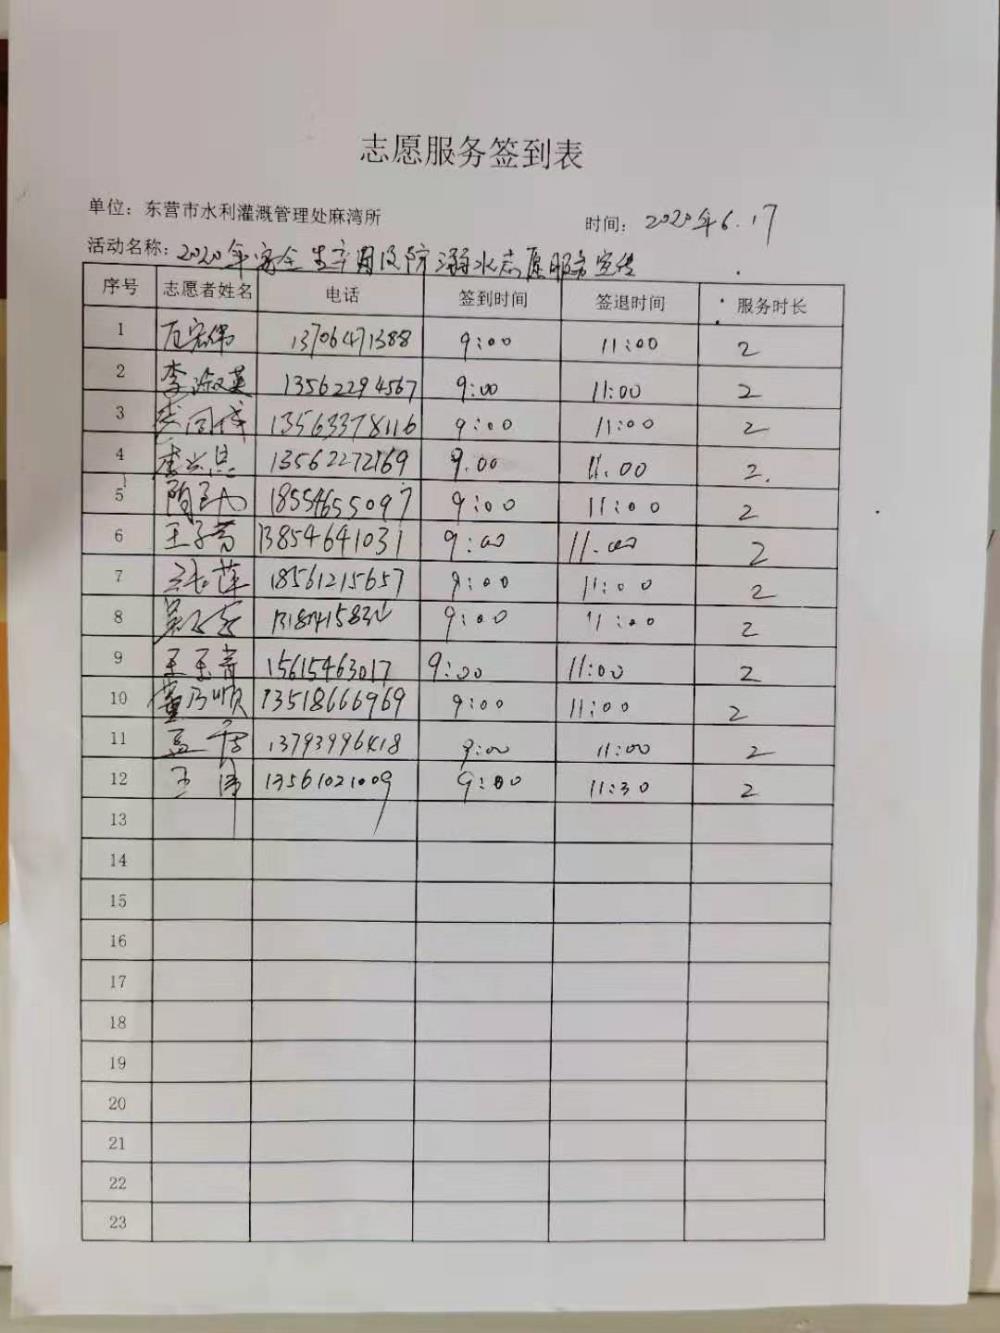 志愿服务签到表
单位：东营市水利灌溉管理处麻湾所
时间：2020年6.17
活动名称：2020年安全生产周及防溺水志愿服务宣传
序号 志愿者姓名 电话 签到时间 签退时间 服务时长
1 13706471388 9:00 11:00 2
2 李淑英 13562294567 9:00 11:00 2
3 13563378116 9:00 11:00 2
4 13562272169 9.00 11.00 2.
5 18554655097 9:00 11:00 2
6 王子芳 13854641031 9:00 11.00 2
7 18561215657 9:00 11:00 2
8 9:00 11:00 2
9 王玉青 15615463017 9:00 11:00 2
10 董乃顺 13518666969 9:00 11:00 2
11 孟 13793996418 9:00 11:00 2
12 王 13561021009 9:00 11:30 2
13
14
15
16
17
18
19
20
21
22
23